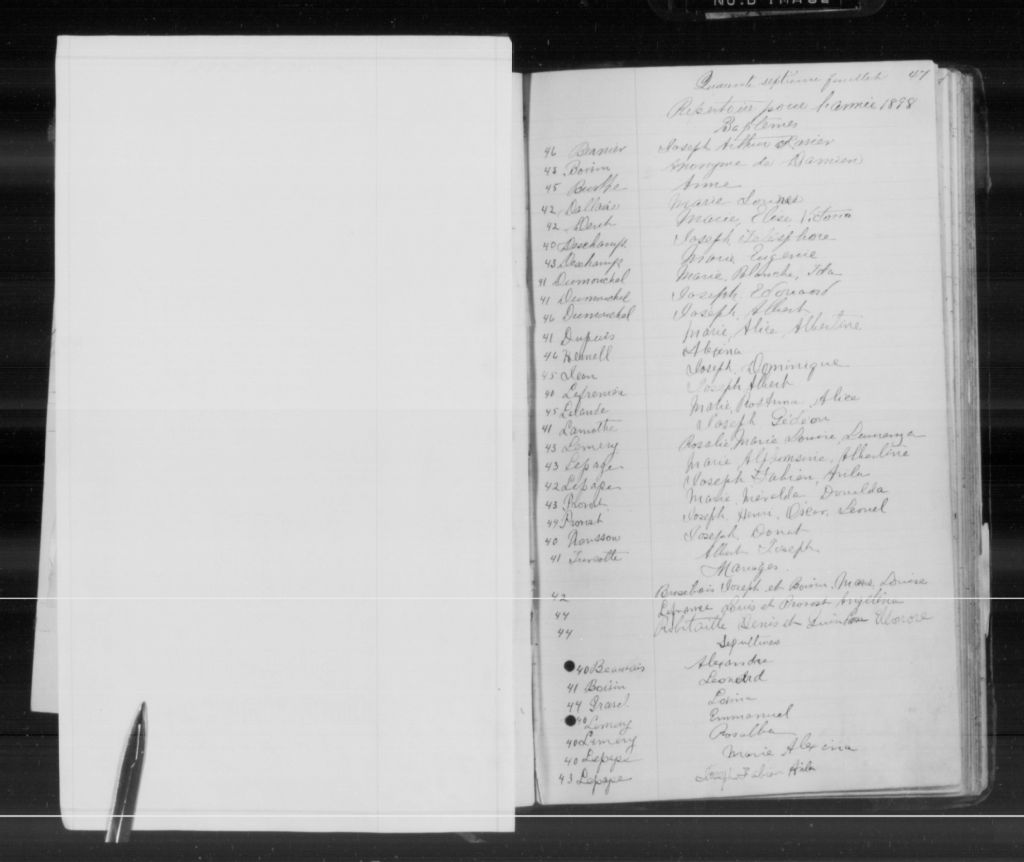 NO. 5 IMAGE
Quarante septième feuillet 47
Répertoire pour l'année 1898
Baptêmes
46 Bernier Joseph Arthur Xavier
43 Boivin Anonyme de Damien
45 Anne
42 Dallaire Marie Louise
42 Marie, Elise Victoria
40 Deschamps Joseph Télésphore
43 Deschamps Marie Eugenie
41 Dumouchel Marie Blanche, Ida
41 Dumouchel Joseph Edouard
46 Dumouchel Joseph, Albert
41 Dupuis Marie, Alice, Albertine
46 Kennell Alexina
45 Jean Joseph, Dominique
40 Lafrenière Joseph Albert
45 Lalande Marie, Alice
41 Lamothe Joseph Gédéon
43 Lemery Rosalie, Marie Louise,
43 Lepage Marie Alphonsine, Albertine
42 Lepage Joseph Fabien, Avila
43 Provost Marie Donalda
44 Provost Joseph, Henri, Oscar, Leonel
40 Joseph, Donat
41 Turcotte Albert Joseph
Mariages
42 Joseph et Boivin, Marie, Louise
44 Louis et Provost Angélina
44 Robitaille Denis et
Sépultures
40 Beauvais Alexandre
41 Boivin Leonard
44
40 Lemery Emmanuel
40 Lemery Rosalba
40 Lepage Marie Alexina
43 Lepage Joseph Fabien Avila